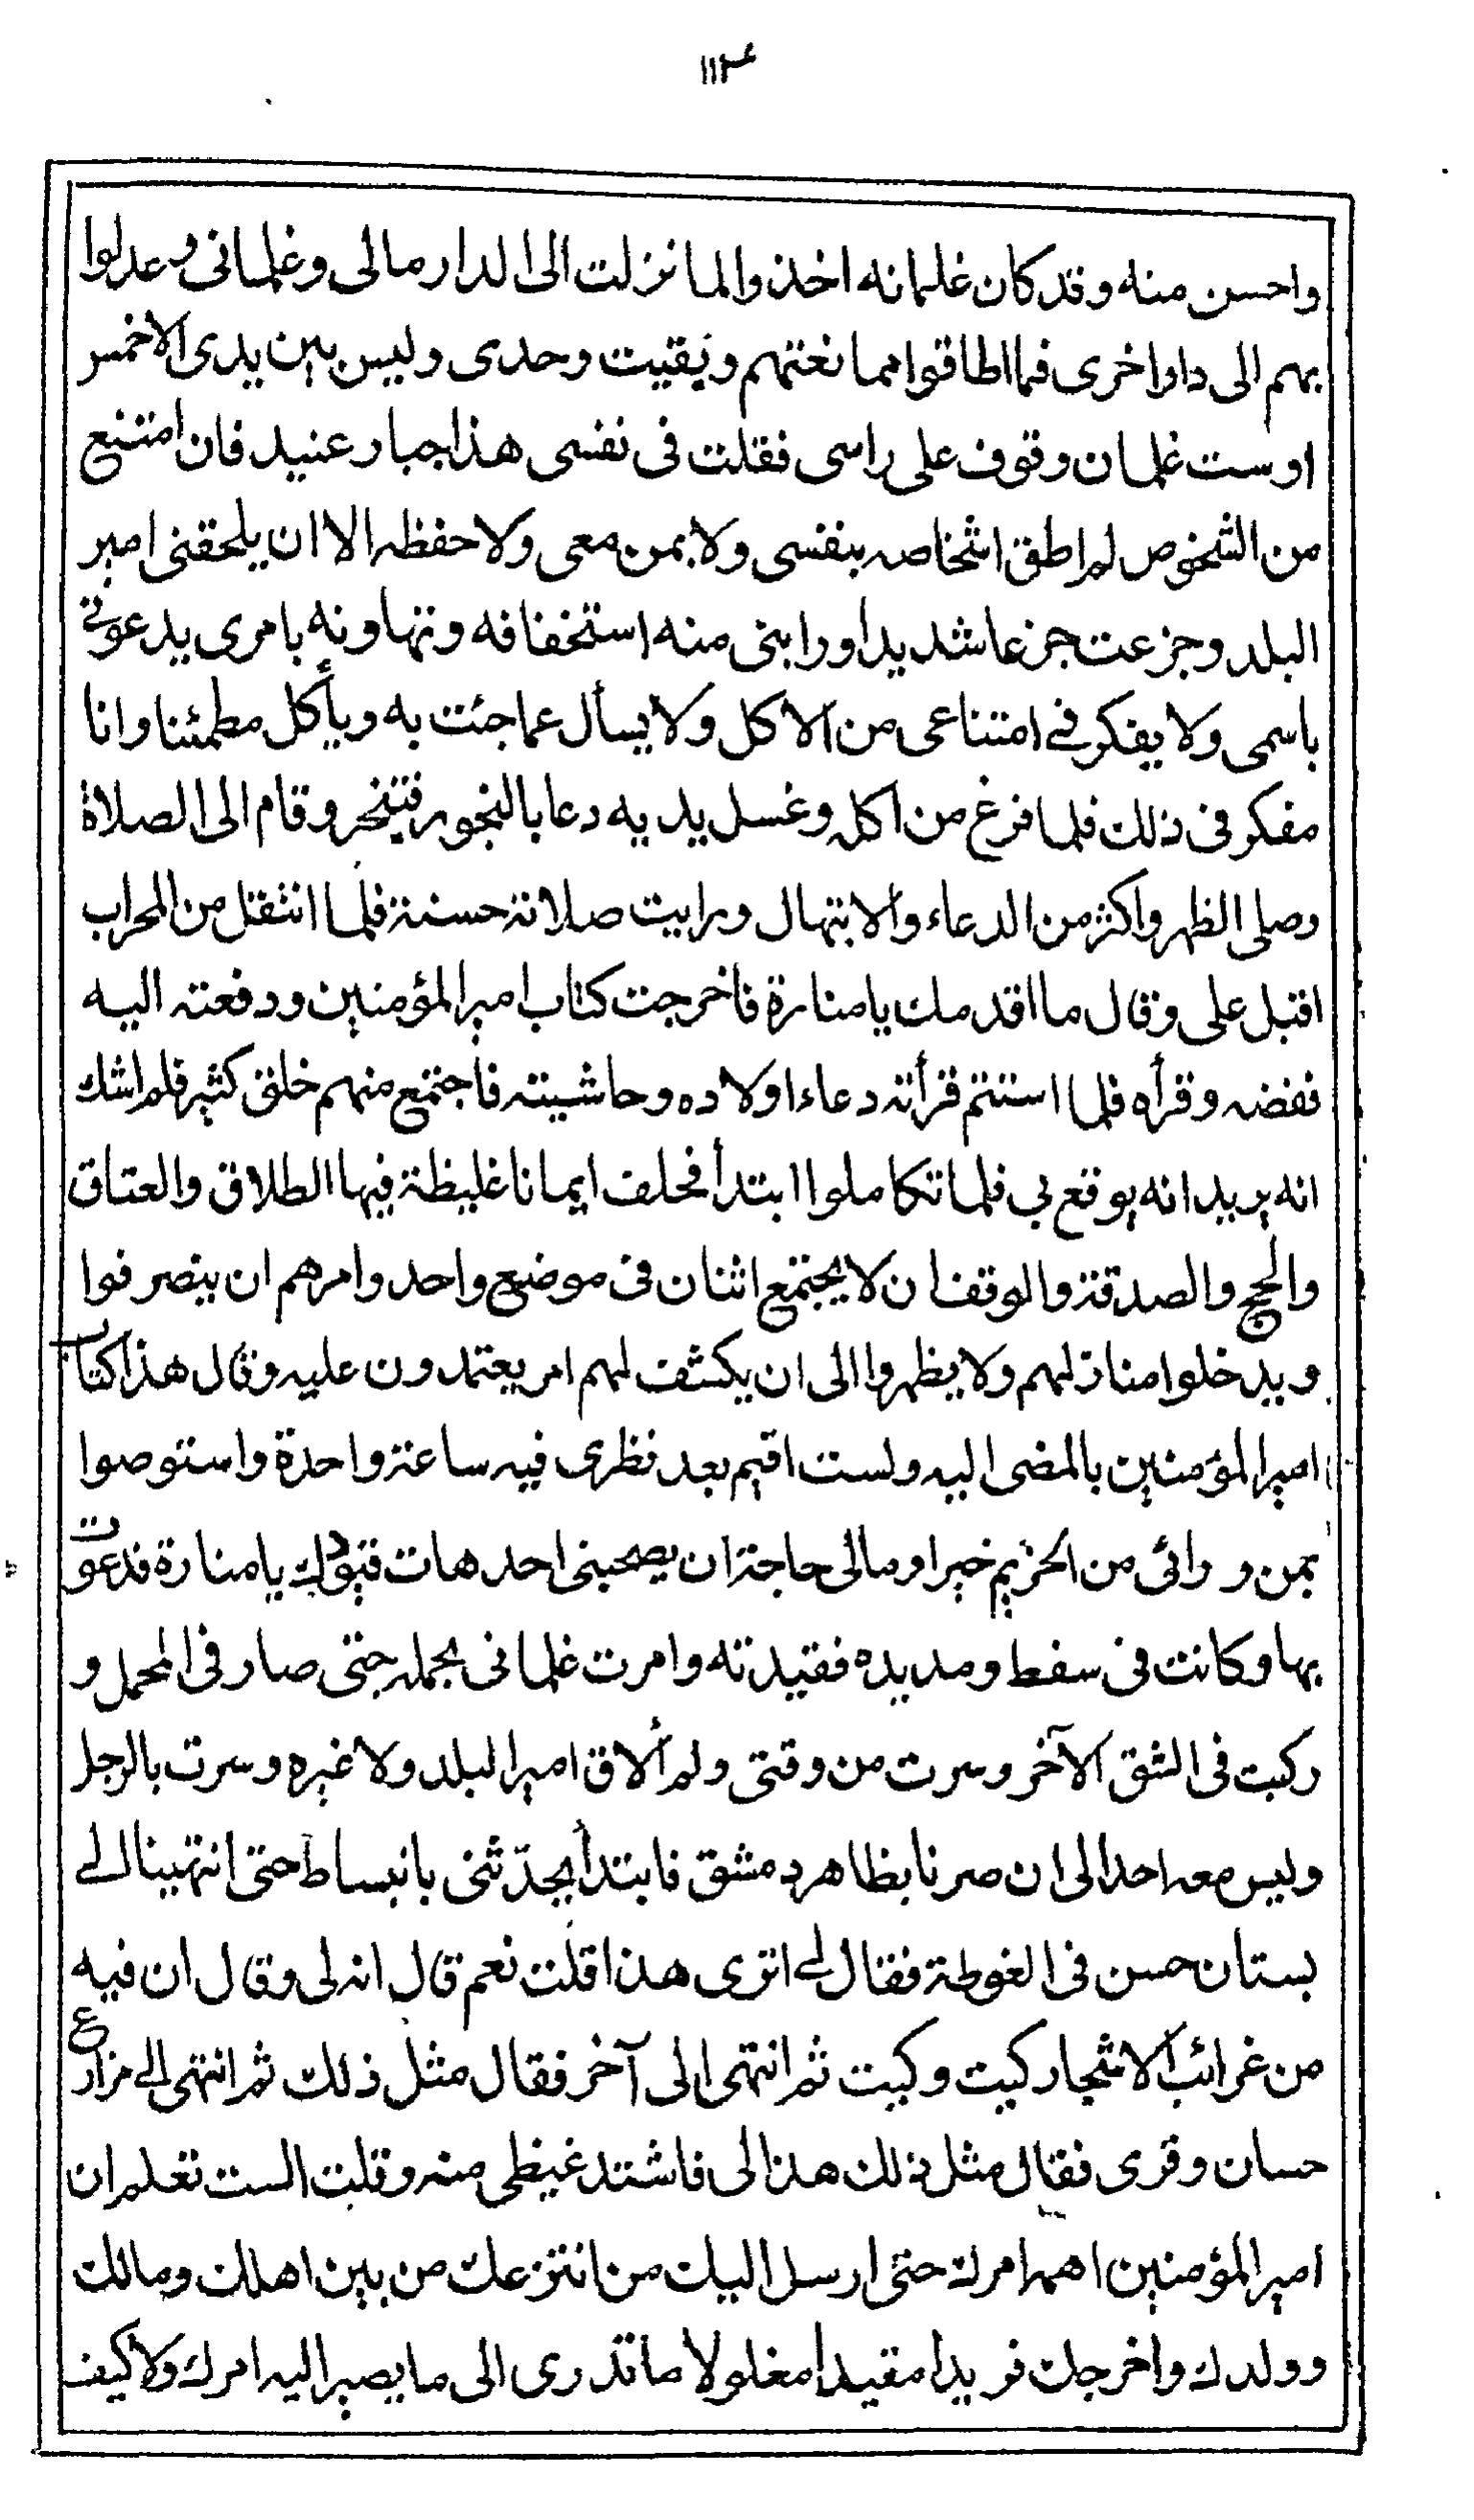 ١١٤
واحسن منه وقد كان غلمانه اخذوا لما نزلت الى الدار مالى وغلمانى وعدلوا
بهم الى دار اخرى فما اطاقوا ممانعتهم وبقيت وحدى وليس بين يدى الا خمس
او ست غلمان وقوف على راسى فقلت فى نفسى هذا جبار عنيد فان امتنع
من الشخوص لم اطق اشخاصه بنفسى ولا بمن معى ولا حفظه الا ان يلحقنى امير
البلد وجزعت جزعا شديدا ورابنى منه استخفافه وتهاونه بامرى يدعونى
باسمى ولا يفكر فى امتناعى من الاكل ولا يسأل عما جئت به ويأكل مطمئنا وانا
مفكر فى ذلك فلما فرغ من اكله وغسل يديه دعا بالبخور فتبخر وقام الى الصلاة
وصلى الظهر واكثر من الدعاء والابتهال ورايت صلاته حسنة فلما انتقل من المحراب
اقبل على وقال ما اقدمك يا منارة فاخرجت كتاب امير المؤمنين ودفعته اليه
ففضه وقرأه فلما استتم قرأته دعاء اولاده وحاشيته فاجتمع منهم خلق كثير فلم اشك
انه يريد انه يوقع بى فلما تكاملوا ابتدأ فحلف ايمانا غليظة فيها الطلاق والعتاق
والحج والصدقة والوقف ان لا يجتمع اثنان فى موضع واحد وامرهم ان ينصرفوا
ويدخلوا منازلهم ولا يظهروا الى ان يكشف لهم امر يعتمدون عليه وقال هذا كتاب
امير المؤمنين بالمضى اليه ولست اقيم بعد نظرى فيه ساعة واحدة واستوصوا
بمن ورائى من الحريم خيرا ومالى حاجة ان يصحبنى احد هات قيودك يا منارة فدعوت
بها وكانت فى سفط ومد يده فقيدته وامرت غلمانى بحمله حتى صار فى المحمل و
ركبت فى الشق الآخر وسرت من وقتى ولم ألاق امير البلد ولا غيره وسرت بالرجل
وليس معه احد الى ان صرنا بظاهر دمشق فابتدأ يحدّثنى بانبساط حتى انتهينا الى
بستان حسن فى الغوطة فقال لى اترى هذا قلت نعم قال انه لى وقال ان فيه
من غرائب الاشجار كيت وكيت ثم انتهى الى آخر فقال مثل ذلك ثم انتهى الى مزارع
حسان وقرى فقال مثل ذلك هذا لى فاشتد غيظى منه وقلت الست تعلم ان
امير المؤمنين اهمه امرك حتى ارسل اليك من انتزعك من بين اهلك ومالك
وولدك واخرجك فريدا مقيدا مغلولا ما تدرى الى ما يصير اليه امرك ولا كيف